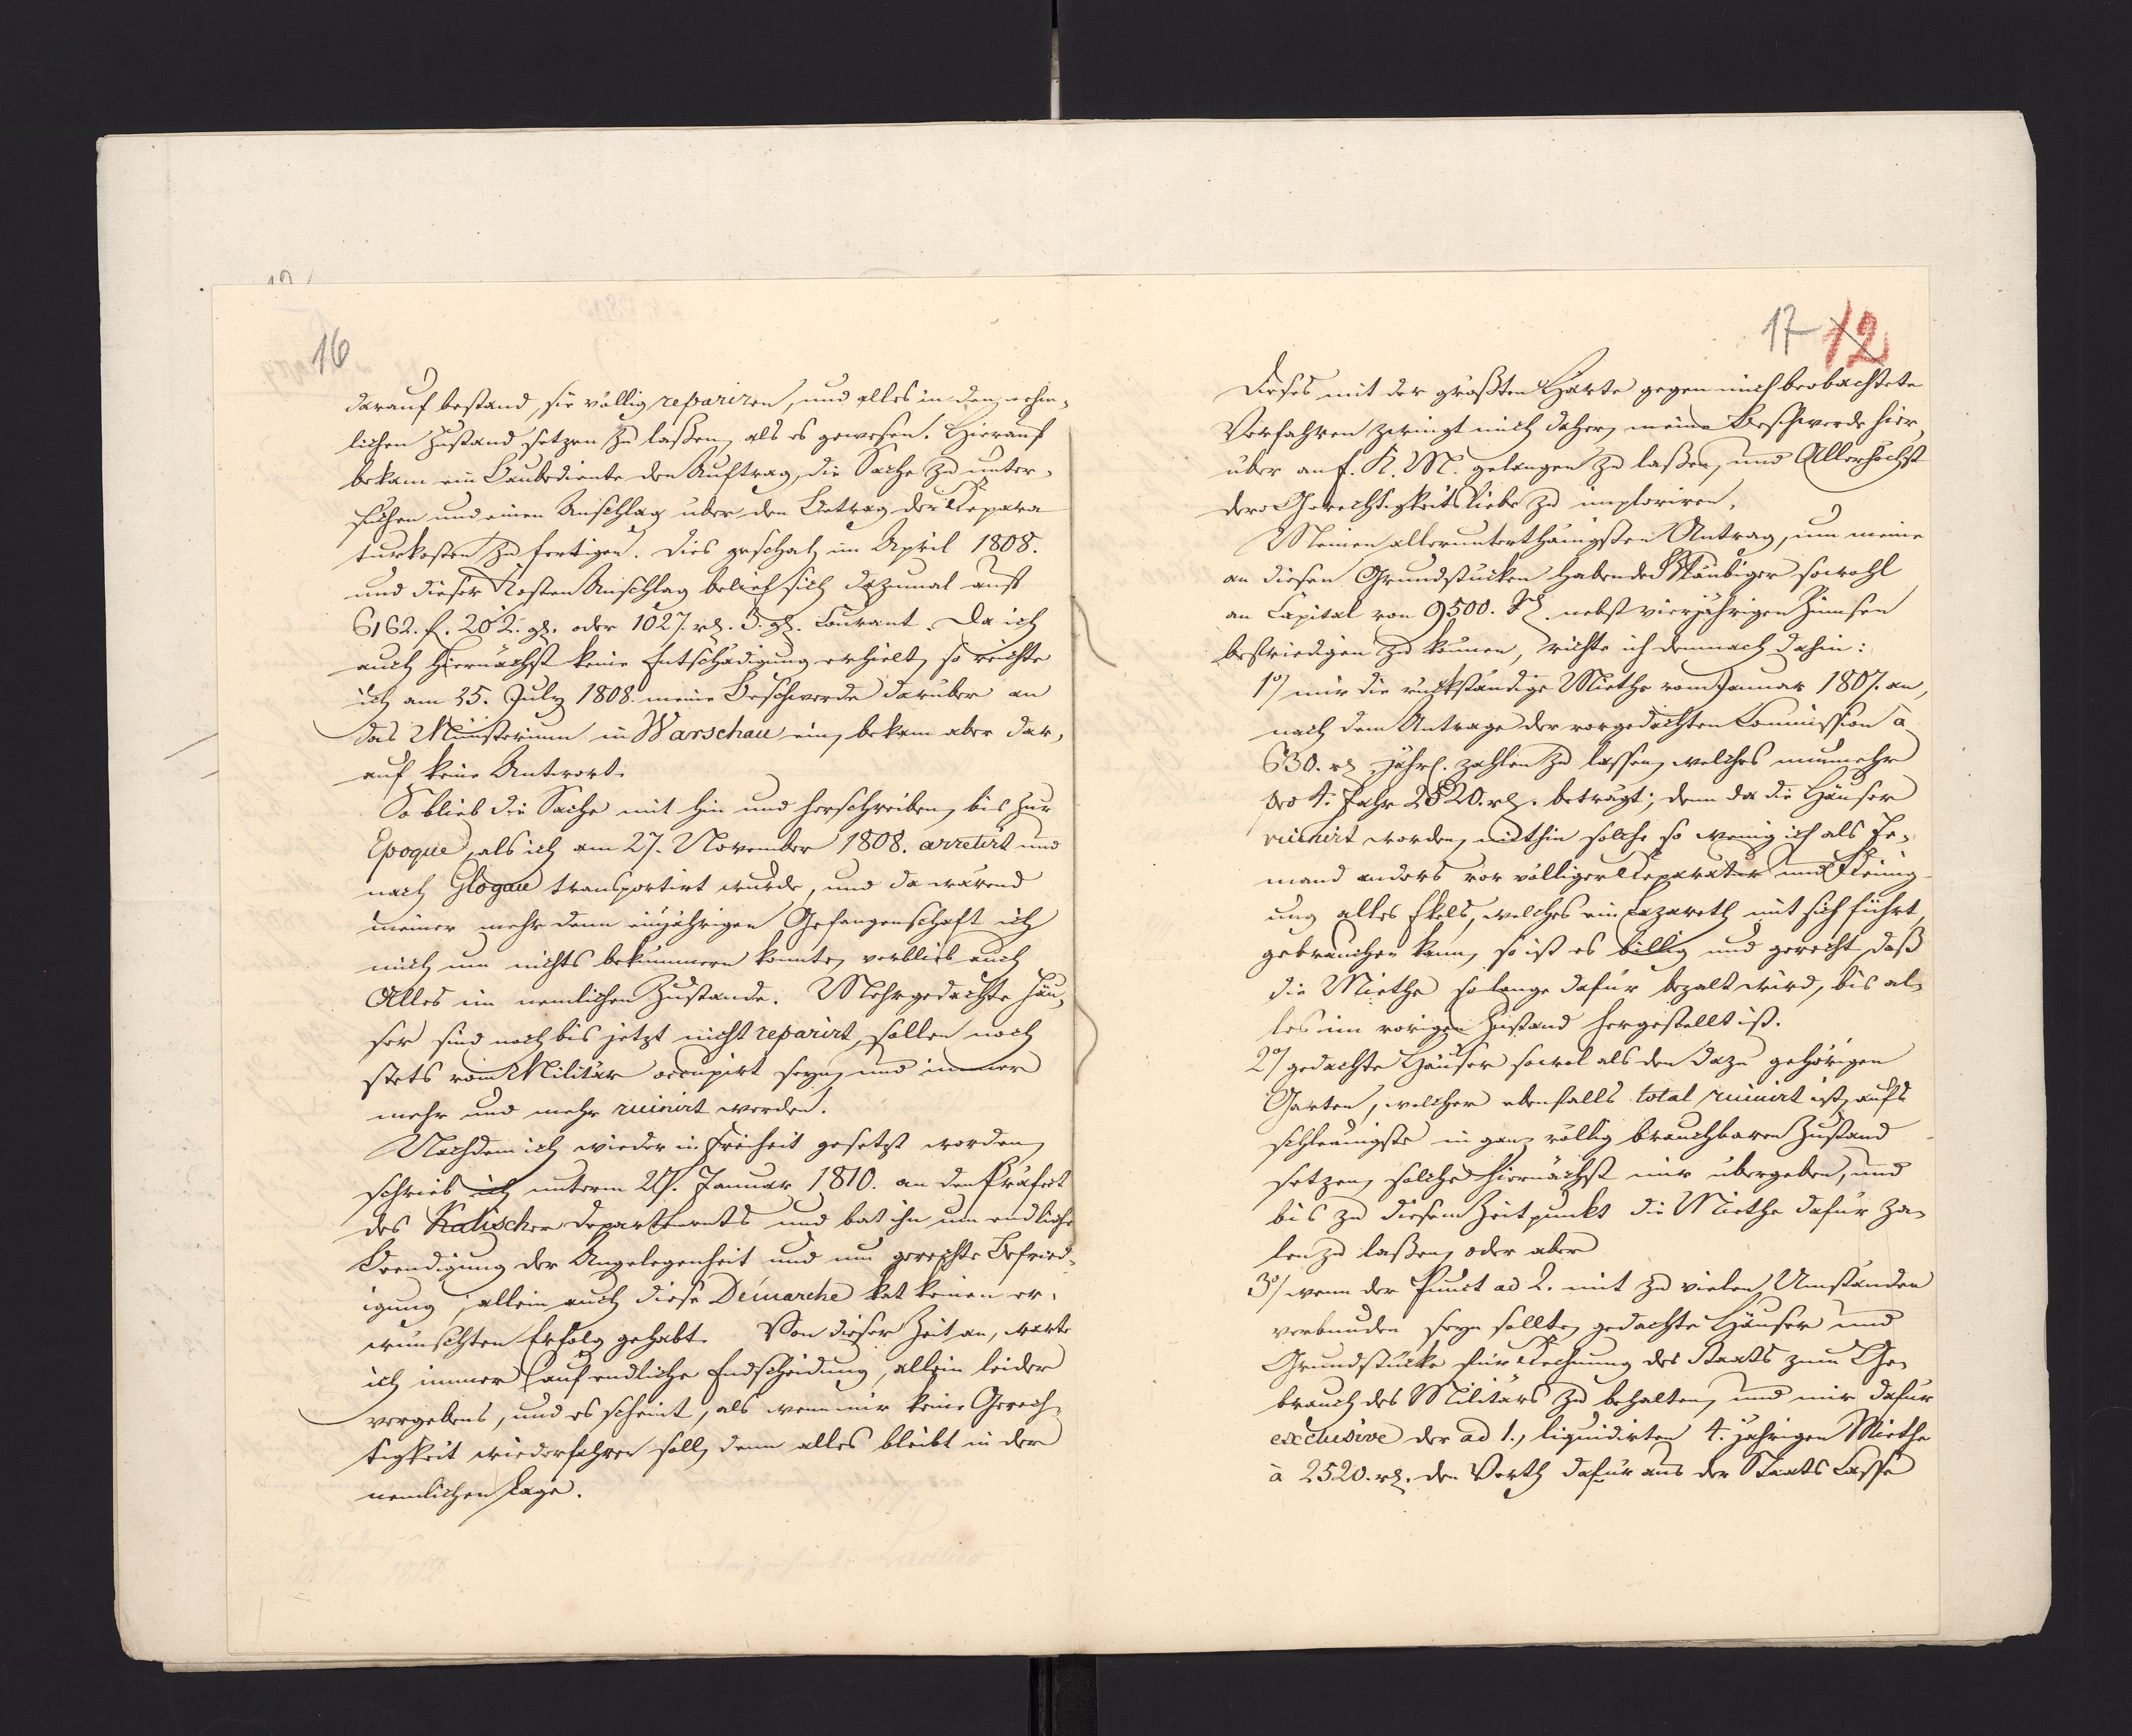 16
darauf bestand, sie völlig repariren, und alles in den nehm-
lichen Zustand setzen zu laßen, als es gewesen. Hierauf
bekam ein Baubediente den Auftrag, die Sache zu unter-
suchen und einen Anschlag über den Betrag der Repara
turkosten zu fertigen. Dies geschah im April 1808.
und dieser Kosten Anschlag belief sich dazumal auf
6162. f. 20½. gl. oder 1027. rl. 3. gl. Courant. Da ich
auch hiernächst keine Entschädigung erhielt, so reichte
ich am 25. July 1808. meine Beschwerde darüber an
das Ministerium in Warschau ein, bekam aber dar-
auf keine Antwort.
So blieb die Sache mit hin und herschreiben, bis zur
Epoque, als ich am 27. November 1808. arretirt und
nach Glogau transportirt wurde, und da wärend
meiner mehr denn einjährigen Gefangenschaft ich
mich um nichts bekümmern konnte, verblieb auch
Alles im nemlichen Zustande. Mehrgedachte Häu-
ser sind noch bis jetzt nicht reparirt, sollen noch
stets vom Militär occupirt seyn, und immer
mehr und mehr ruinirt werden.
Nachdem ich wieder in Freiheit gesetzt worden,
schrieb ich unterm 27. Januar 1810. an den Präfect
des Kalischer Departements und bat ihn um endliche
Beendigung der Angelegenheit und um gerechte Befried-
igung, allein auch diese Démarche hat keinen er-
wünschten Erfolg gehabt. Von dieser Zeit an, warte
ich immer auf endliche Endscheidung, allein leider
vergebens, und es scheint, als wenn mir keine Gerech-
tigkeit wiederfahren soll, denn alles bleibt in der
nemlichen Lage.
17 12
Dieses mit der größten Härte gegen mich beobachtete
Verfahren zwingt mich daher, meine Beschwerde hier-
über an E. K. M. gelangen zu laßen, und Allerhöchst
dero Gerechtigkeitsliebe zu imploriren.
Meinen allerunterthänigsten Antrag, um meine
an diesen Grundstücken habende Gläubiger sowohl
an Capital von 9500. rl. nebst vierjährigen Zinsen
befriedigen zu können, richte ich demnach dahin:
1o/ mir die rückständige Miethe vom Januar 1807. an,
nach dem Antrage der vorgedachten Commission à
630. rl. jährl. zahlen zu lassen, welches nunmehr
pro 4. Jahr 2520. rl. beträgt; denn da die Häuser
ruinirt worden, mithin solche so wenig ich als Je-
mand anders vor völliger Reparatur und Reinig-
ung alles Ekels, welches ein Lazareth mit sich führt,
gebrauchen kann, so ist es billig und gerecht, daß
die Miethe solange dafür bezalt wird, bis al-
les im vorigen Zustand hergestellt ist.
2o/ gedachte Häuser sowol als den dazu gehörigen
Garten, welcher ebenfalls total ruinirt ist, aufs
schleunigste in ganz völlig brauchbaren Zustand
setzen, solche hiernächst mir übergeben, und
bis zu diesem Zeitpunkt die Miethe dafür za-
len zu laßen, oder aber
3o/ wenn der Punct ad 2. mit zu vielen Umständen
verbunden seyn sollte, gedachte Häuser und
Grundstücke für Rechnung des Staats zum Ge-
brauch des Militärs zu behalten, und mir dafür
exclusive der ad 1., liquidirten 4. jährigen Miethe
à 2520. rl. den Werth dafür aus der Staats Casse